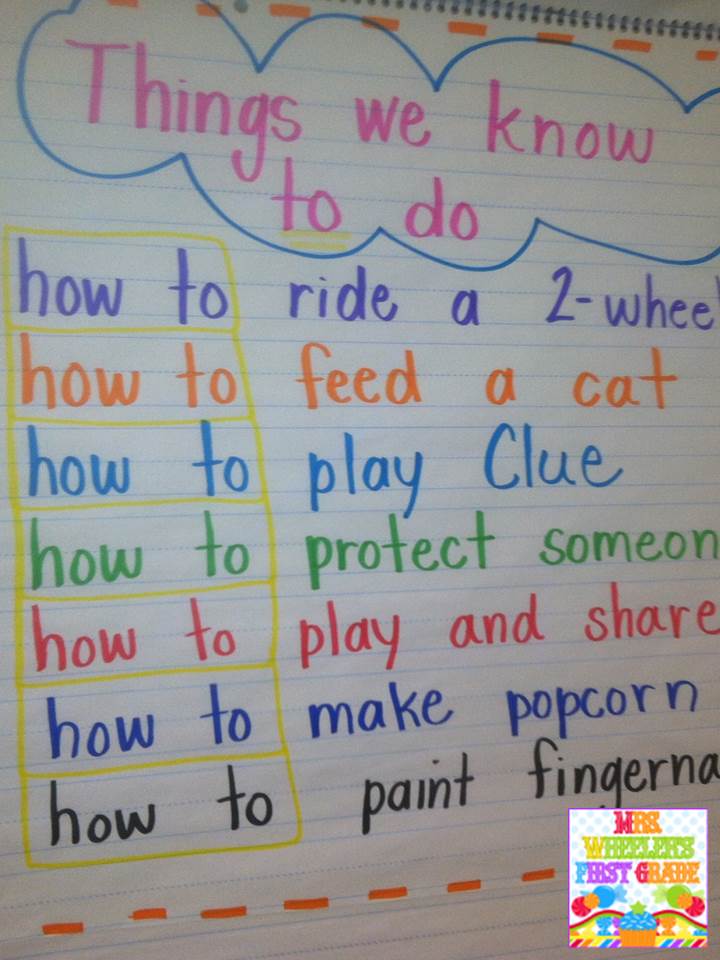 Things we know
to do
how to ride a 2-wheel
how to feed a cat
how to play Clue
how to protect someon
how to play and share
how to make popcorn
how to paint fingerna
MRS.
WHEELER'S
FIRST GRADE